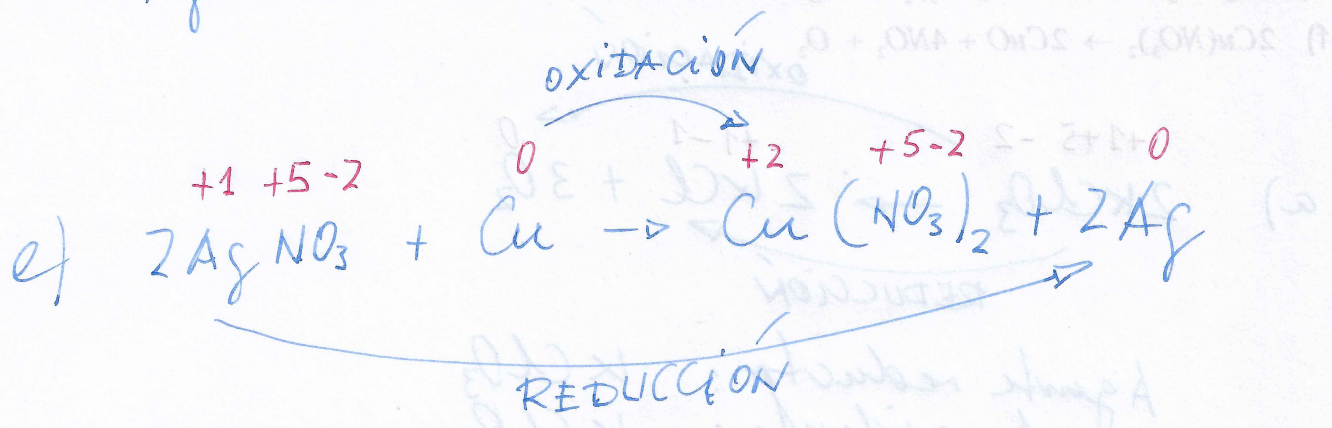 OXIDACIÓN
+1 +5-2 0 +2 +5-2 0
e) 2AgNO₃ + Cu → Cu(NO₃)₂ + 2Ag
REDUCCIÓN